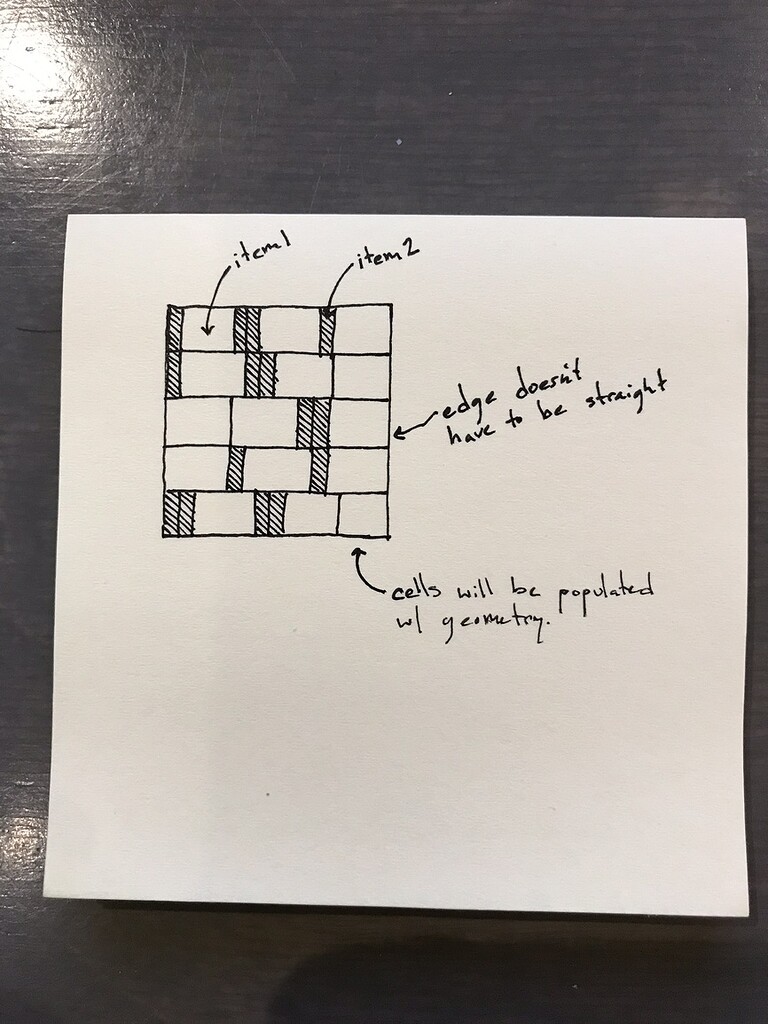 item1
item2
edge doesn't
have to be straight
cells will be populated
w/ geometry.